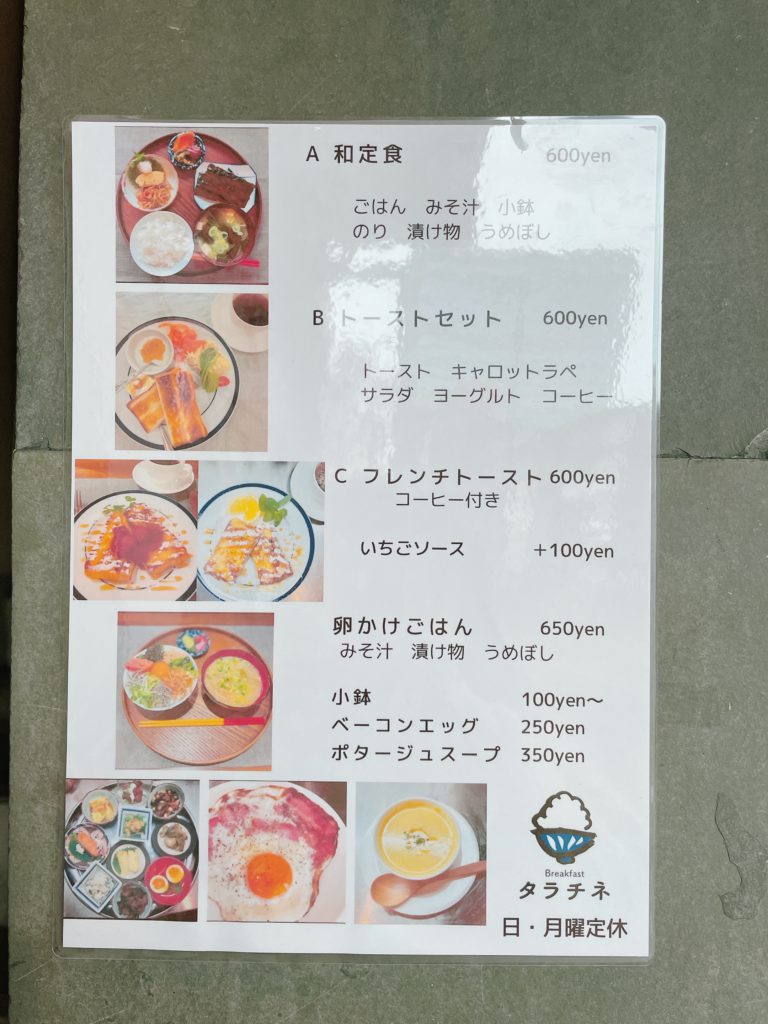 A 和定食 600yen
ごはん みそ汁 小鉢
のり 漬け物 うめぼし
B トーストセット 600yen
トースト キャロットラペ
サラダ ヨーグルト コーヒー
C フレンチトースト 600yen
コーヒー付き
いちごソース +100yen
卵かけごはん 650yen
みそ汁 漬け物 うめぼし
小鉢 100yen～
ベーコンエッグ 250yen
ポタージュスープ 350yen
Breakfast
タラチネ
日・月曜定休